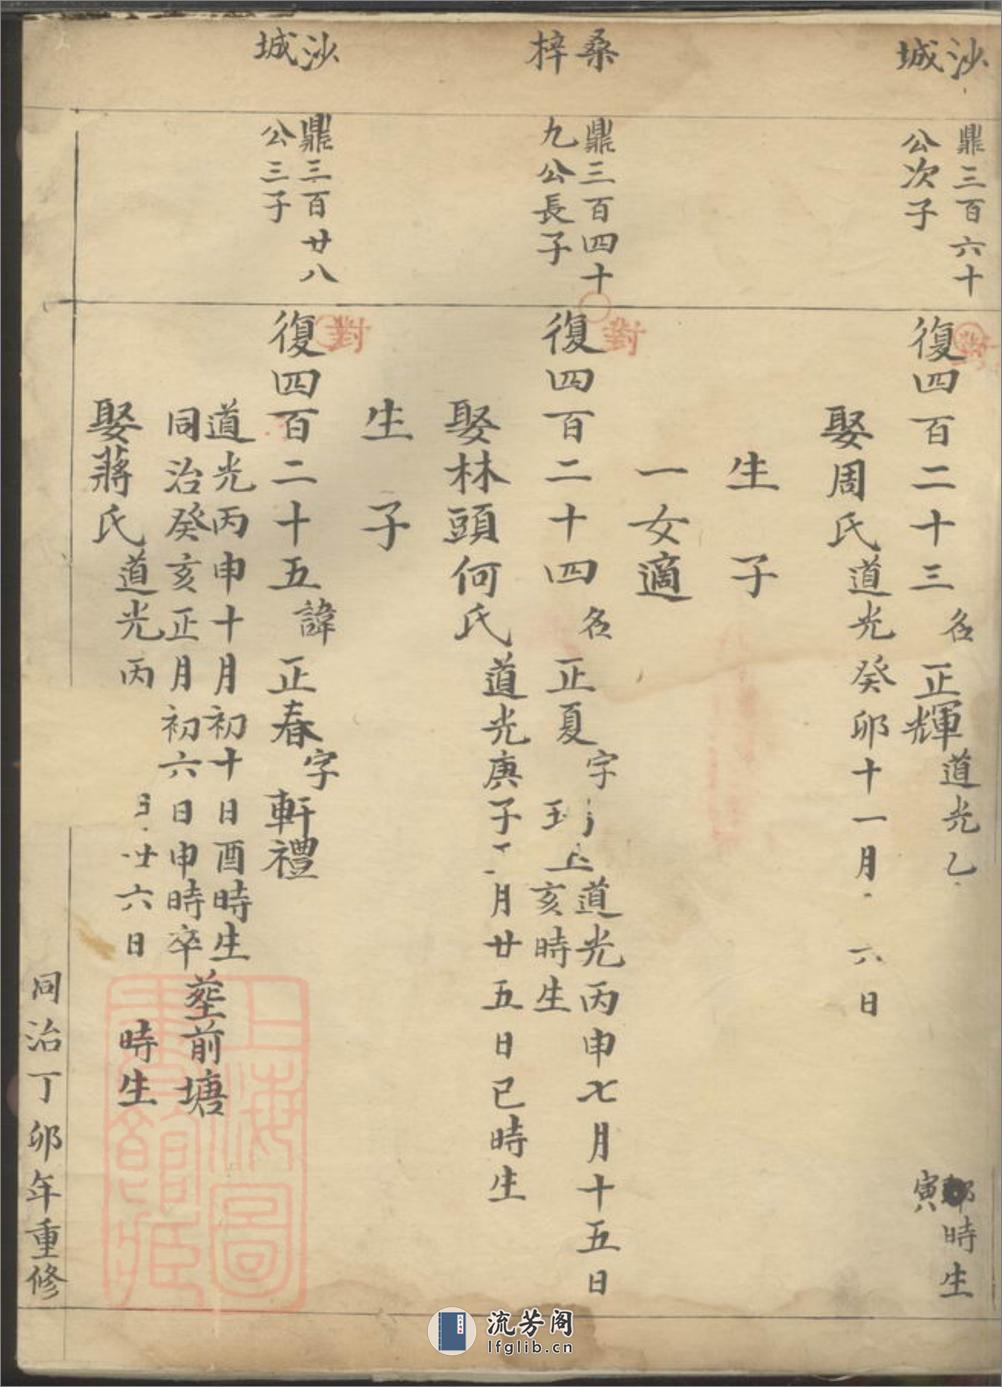 沙城
鼎三百六十
公次子
復四百二十三名正輝道光乙
時生
寅
娶周氏道光癸卯十一月 六日
生子
一女適
桑梓
鼎三百四十
九公長子
復四百二十四名正夏字 道光丙申七月十五日
亥時生
娶林頭何氏道光庚子 月廿五日巳時生
生子
沙城
鼎三百廿八
公三子
復四百二十五諱正春字軒禮
道光丙申十月初十日酉時生
同治癸亥正月初六日申時卒塟前塘
娶蔣氏道光丙 廿六日 時生
同治丁卯年重修
對
對
對
上海圖書館藏
流芳阁
lfglib.cn